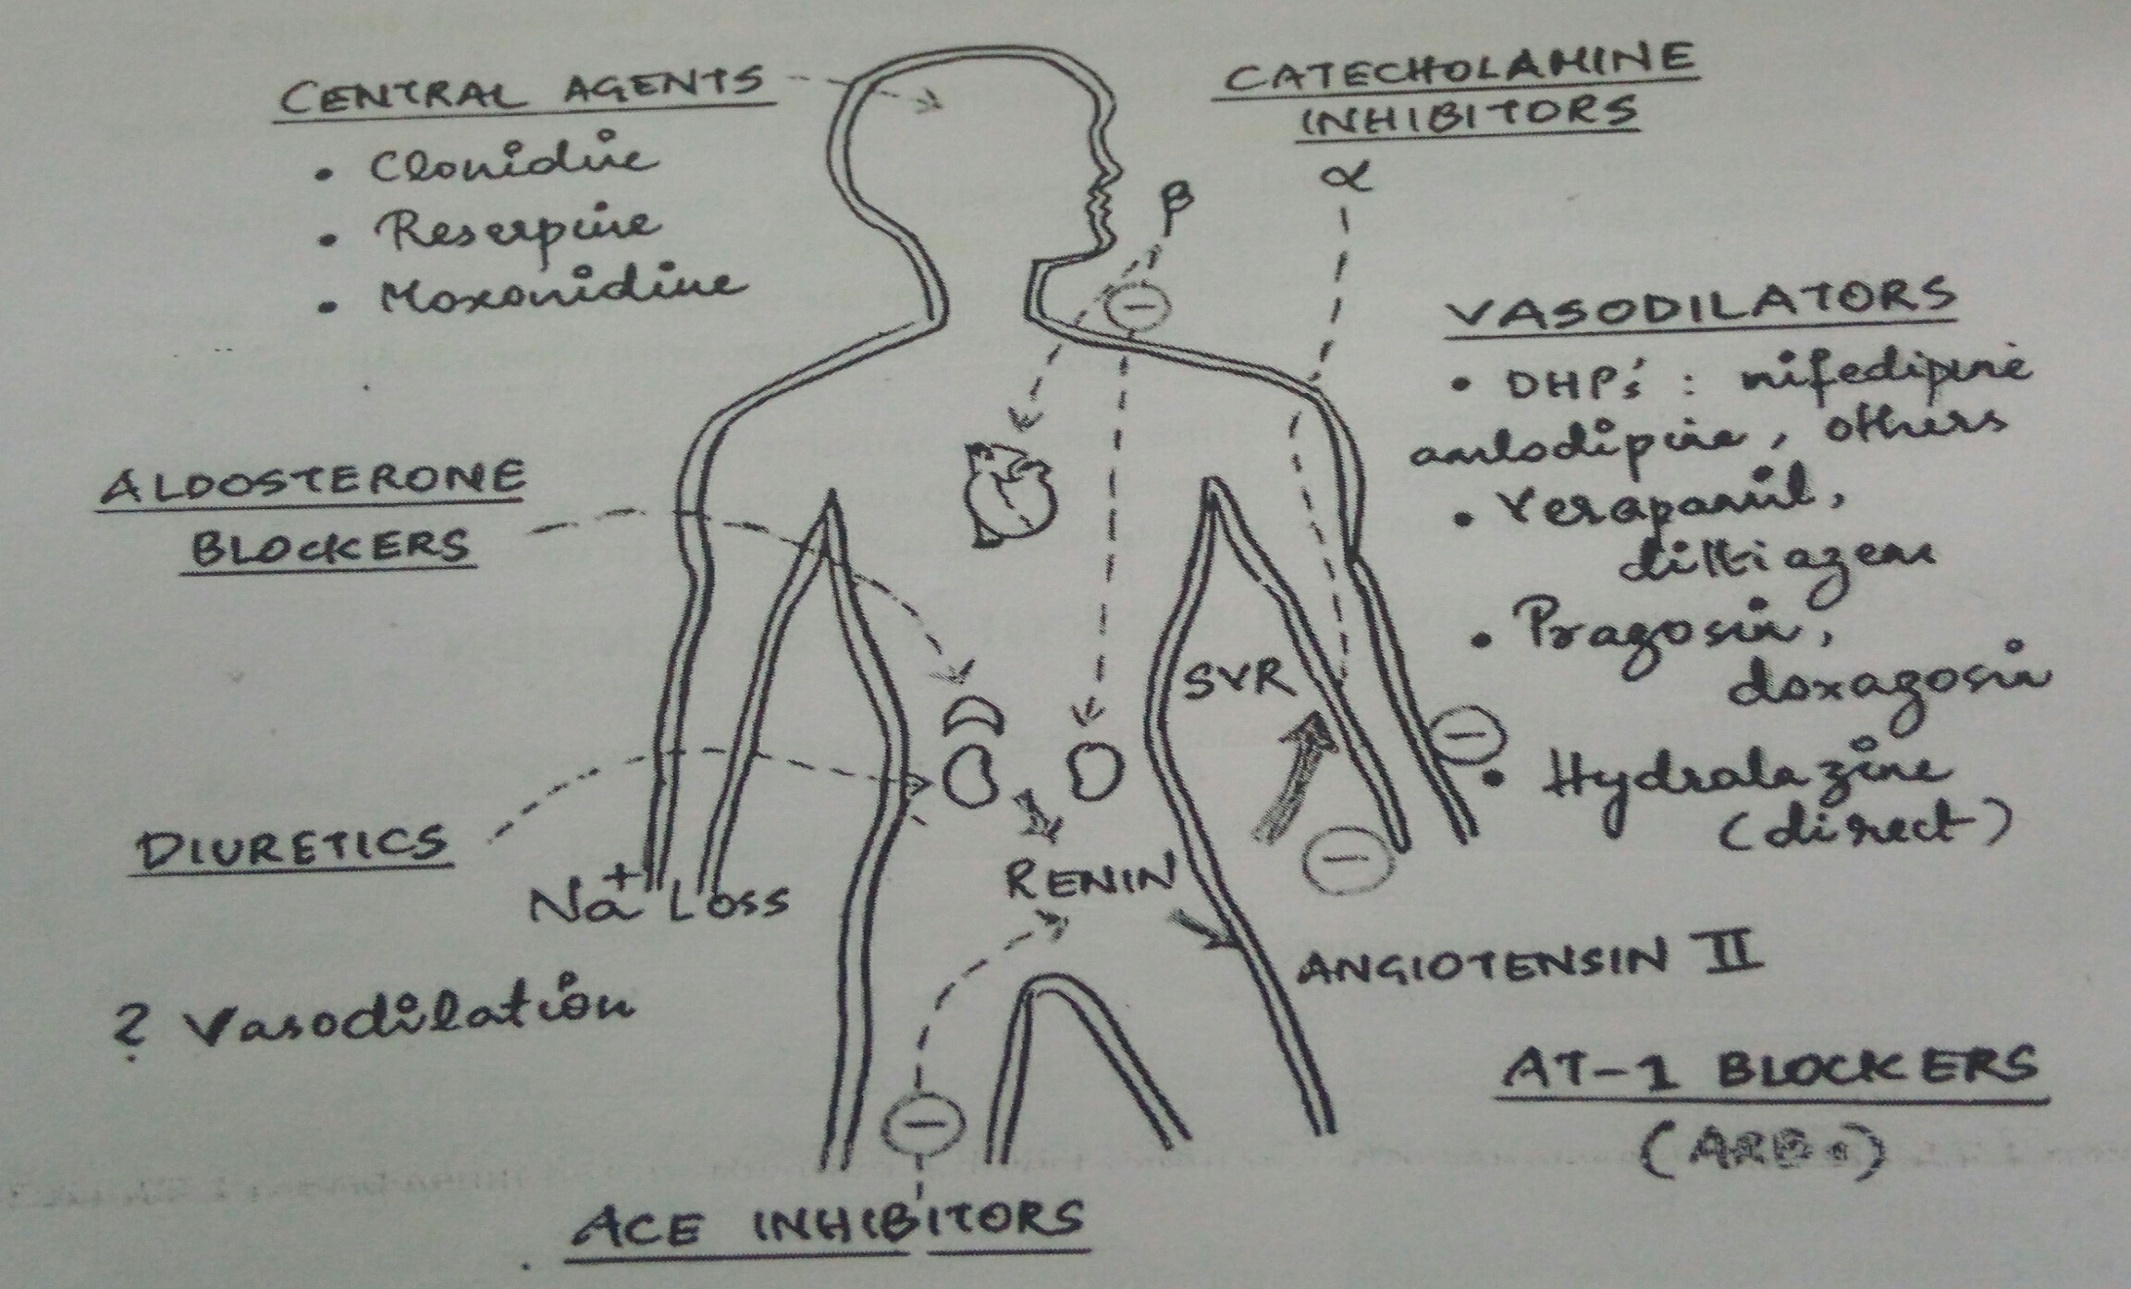 CENTRAL AGENTS
• Clonidine
• Reserpine
• Moxonidine
CATECHOLAMINE
INHIBITORS
α
β
−
VASODILATORS
• DHP's : nifedipine
amlodipine, others
• Verapamil,
diltiazem
• Prazosin,
doxazosin
• Hydralazine
(direct)
−
ALDOSTERONE
BLOCKERS
SVR
−
DIURETICS
Na+ Loss
RENIN
? Vasodilation
ANGIOTENSIN II
AT-1 BLOCKERS
(ARBs)
−
ACE INHIBITORS